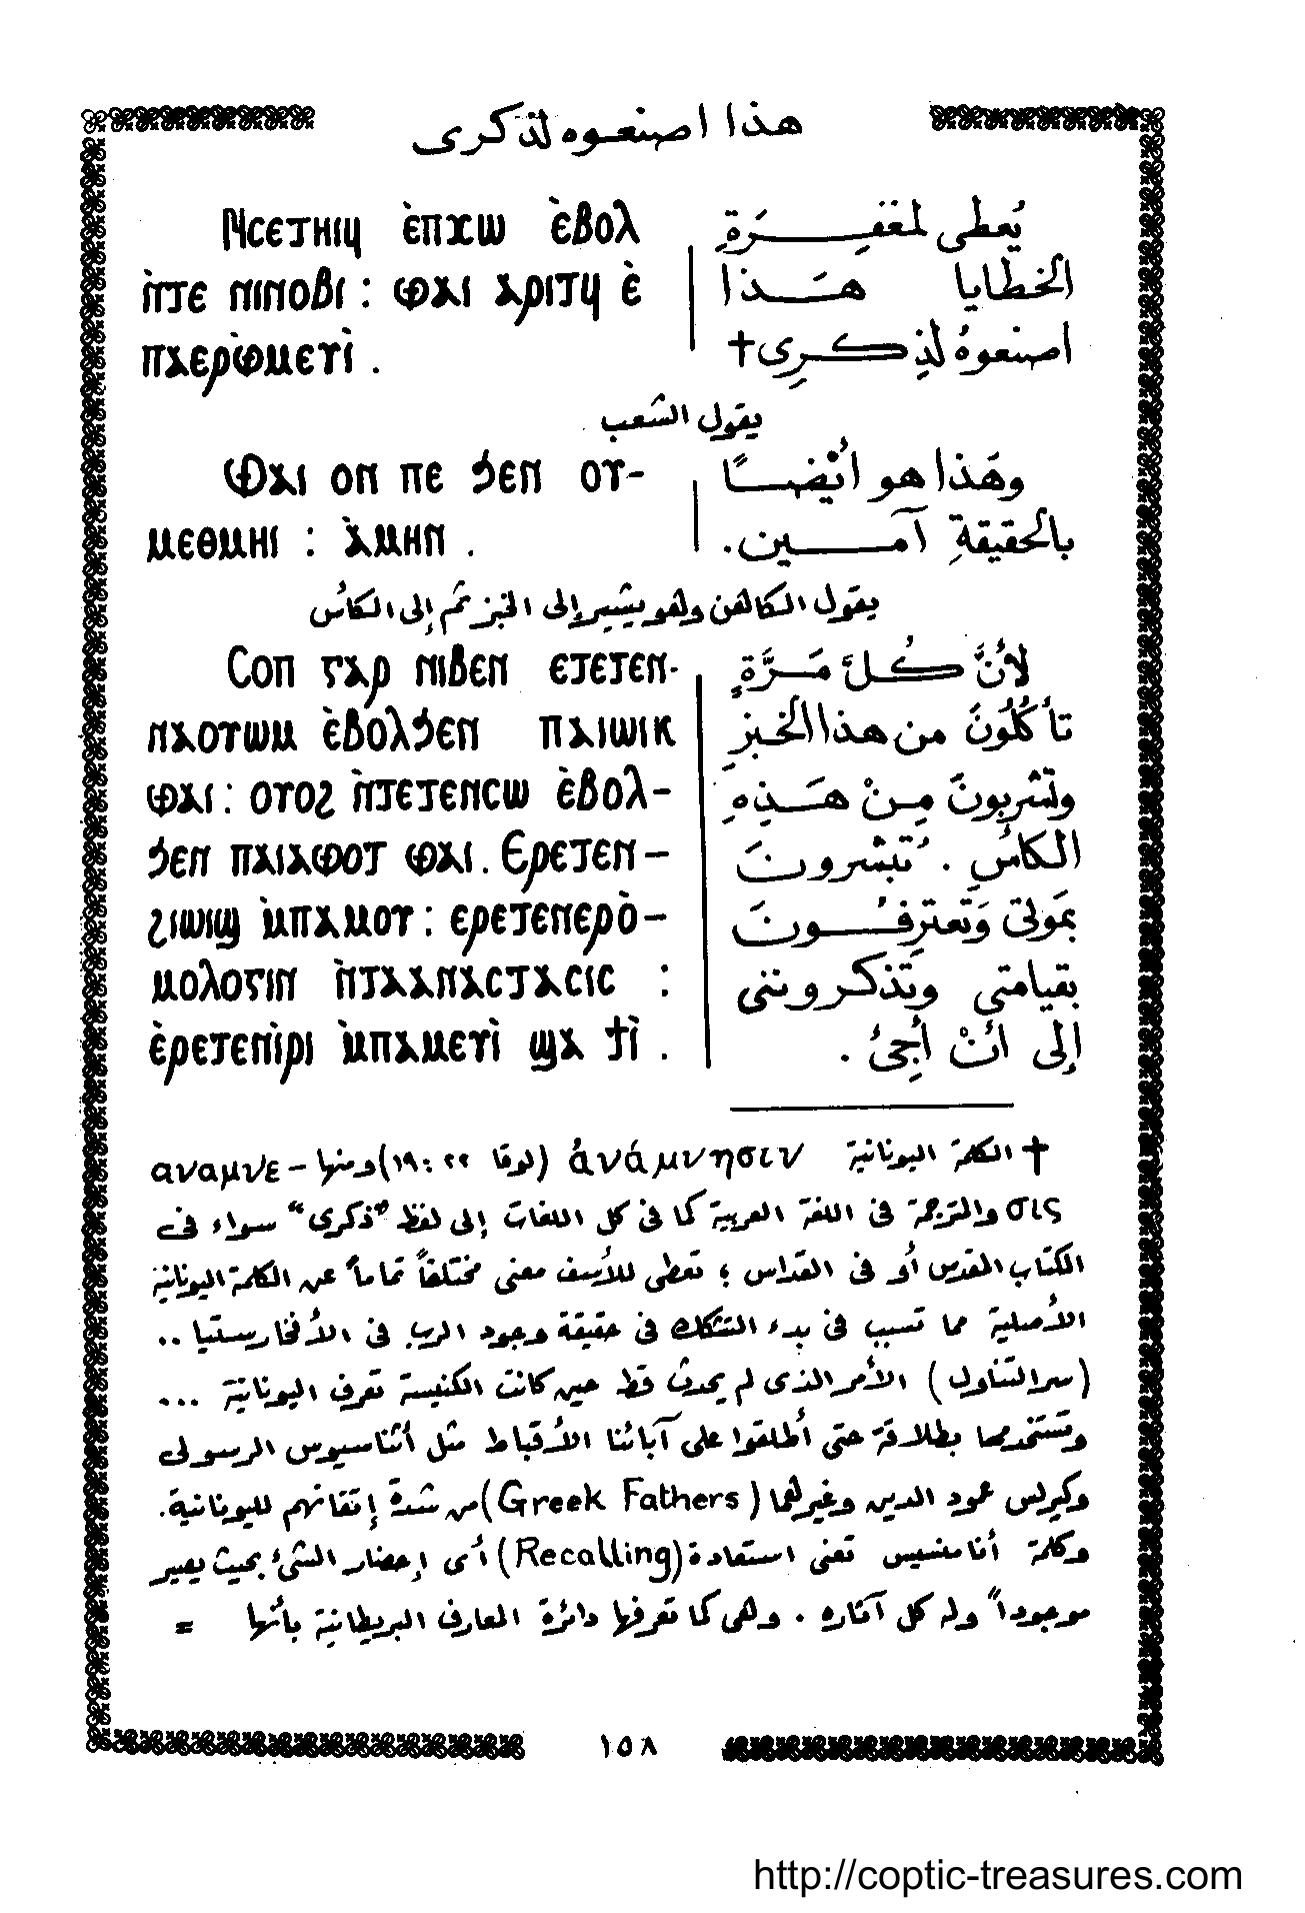 هذا اصنعوه لذكرى
Ⲛⲥⲉⲧⲏⲓϥ ⲉ̀ⲡⲭⲱ ⲉ̀ⲃⲟⲗ
ⲛ̀ⲧⲉ ⲛⲓⲛⲟⲃⲓ : ⲫⲁⲓ ⲁⲣⲓⲧϥ ⲉ̀
ⲡⲁⲉⲣⲫ̀ⲙⲉⲩⲓ̀ .
يُعطى لمغفِرَةِ
الخطايا هَذا
اصنعوهُ لذِكرِى †
يقول الشعب
Ⲫⲁⲓ ⲟⲛ ⲡⲉ ϧⲉⲛ ⲟⲩ-
ⲙⲉⲑⲙⲏⲓ : ⲁ̀ⲙⲏⲛ .
وهَذا هو أيْضًا
بالحقيقةِ آمين .
يقول الكاهن وهو يشير إلى الخبز ثم إلى الكأس
Ⲥⲟⲡ ⲅⲁⲣ ⲛⲓⲃⲉⲛ ⲉⲧⲉⲧⲉⲛ-
ⲛⲁⲟⲩⲱⲙ ⲉ̀ⲃⲟⲗϧⲉⲛ ⲡⲁⲓⲱⲓⲕ
ⲫⲁⲓ : ⲟⲩⲟϩ ⲛ̀ⲧⲉⲧⲉⲛⲥⲱ ⲉ̀ⲃⲟⲗ-
ϧⲉⲛ ⲡⲁⲓⲁⲫⲟⲧ ⲫⲁⲓ . Ⲉⲣⲉⲧⲉⲛ-
ϩⲓⲱⲓϣ ⲙ̀ⲡⲁⲙⲟⲩ : ⲉⲣⲉⲧⲉⲛⲉⲣⲟ̀-
ⲙⲟⲗⲟⲅⲓⲛ ⲛ̀ⲧⲁⲁⲛⲁⲥⲧⲁⲥⲓⲥ :
ⲉ̀ⲣⲉⲧⲉⲛⲓ̀ⲣⲓ ⲙ̀ⲡⲁⲙⲉⲩⲓ̀ ϣⲁ ϯⲓ̀ .
لأنَّ كُلَّ مَرَّةٍ
تأكُلُونَ من هذا الخبزِ
وتشربونَ مِنْ هَذِهِ
الكأسِ . تُبشرونَ
بموتى وَتعترِفُونَ
بقيامتي وتذكروننى
إلى أنْ أجِئُ .
† الكلمة اليونانية ἀνάμνησιν (لوقا ٢٢ : ١٩) ومنها αναμνε-
σις والترجمة فى اللغة العربية كما فى كل اللغات إلى لفظ "ذكرى" سواء فى
الكتاب المقدس أو فى القداس ؛ تعطى للأسف معنى مختلفاً تماماً عن الكلمة اليونانية
الأصلية مما تسبب فى بدء التشكك فى حقيقة وجود الرب فى الأفخارستيا ..
(سر التناول) الأمر الذى لم يحدث قط حين كانت الكنيسة تعرف اليونانية ...
وتستخدمها بطلاقة حتى أطلقوا على آبائنا الأقباط مثل أثناسيوس الرسولى
وكيرلس عمود الدين وغيرهما (Greek Fathers) من شدة إتقانهم لليونانية.
وكلمة أنامنسيس تعنى استعادة (Recalling) أى إحضار الشئ بحيث يصير
موجوداً وله كل آثاره . وهى كما تعرفها دائرة المعارف البريطانية بأنها =
١٥٨
http://coptic-treasures.com